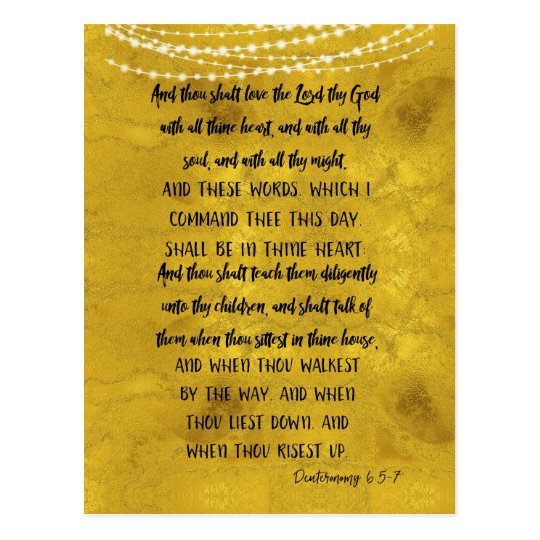 And thou shalt love the Lord thy God
with all thine heart, and with all thy
soul, and with all thy might.
AND THESE WORDS, WHICH I
COMMAND THEE THIS DAY,
SHALL BE IN THINE HEART:
And thou shalt teach them diligently
unto thy children, and shalt talk of
them when thou sittest in thine house,
AND WHEN THOU WALKEST
BY THE WAY, AND WHEN
THOU LIEST DOWN, AND
WHEN THOU RISEST UP.
Deuteronomy 6 5-7